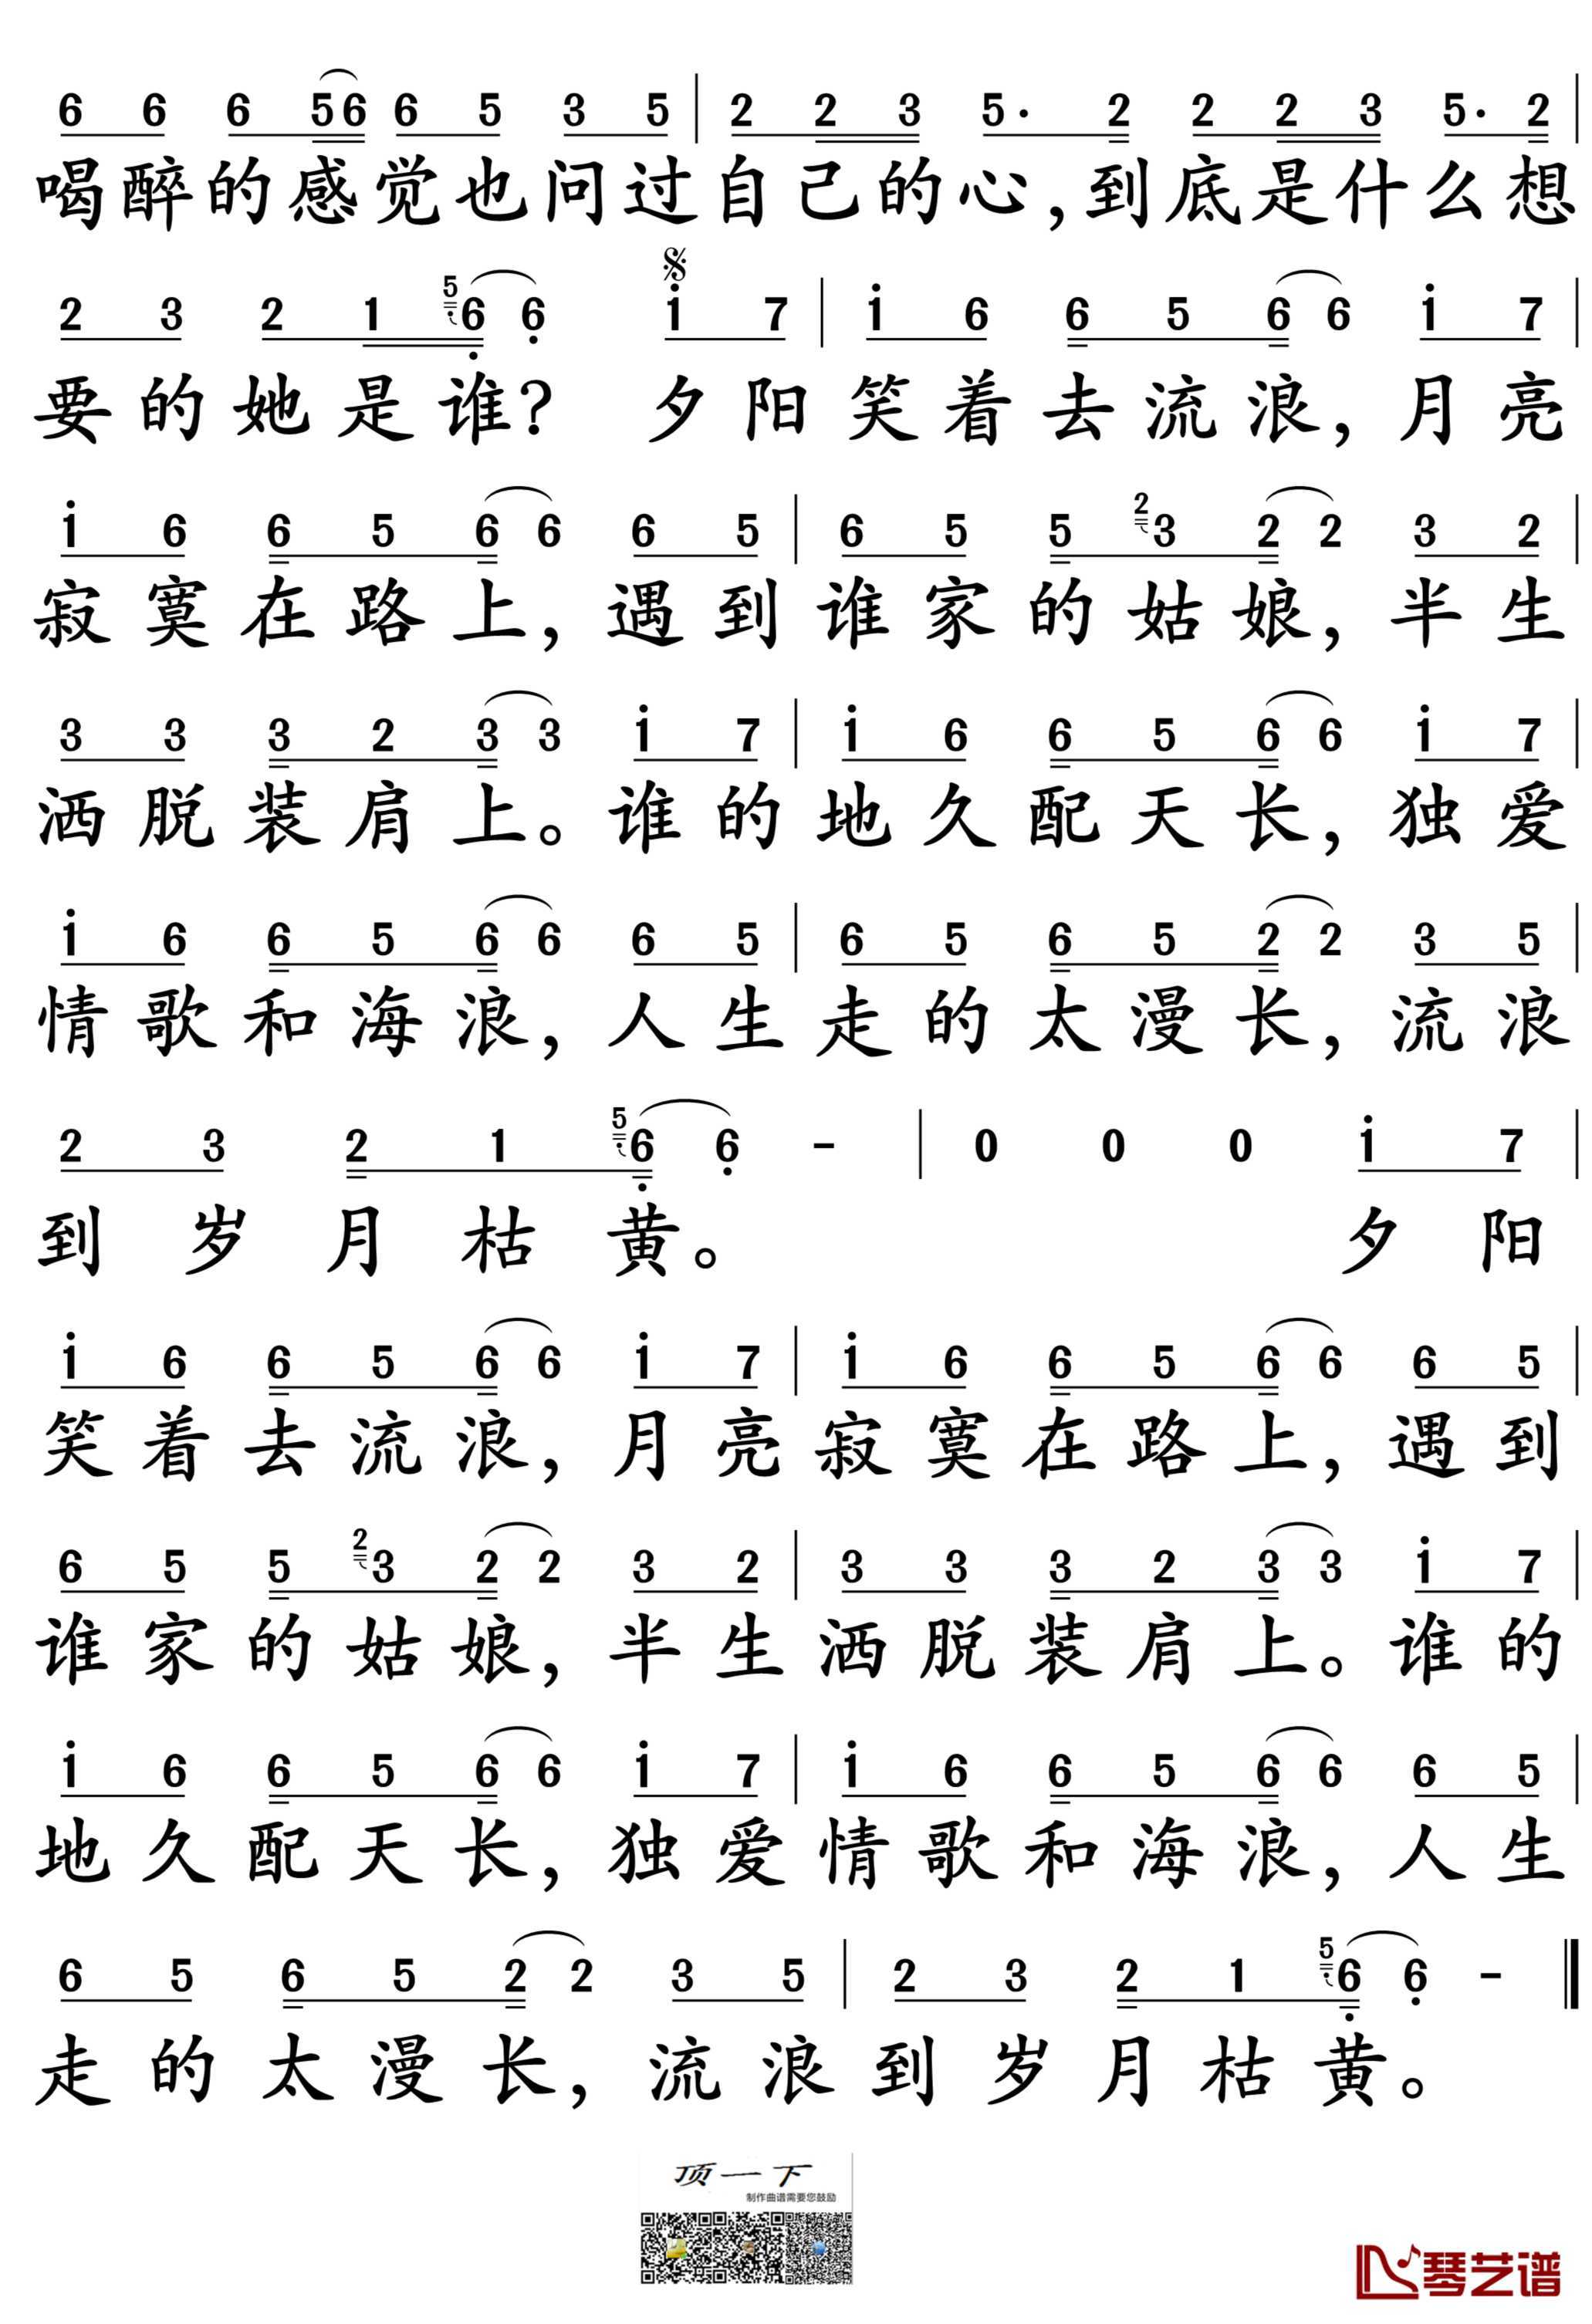 6 6 6 56 6 5 3 5 | 2 2 3 5· 2 2 2 3 5· 2 |
喝醉的感觉也问过自己的心,到底是什么想
2 3 2 1 5 6̣ 6̣ i 7 | i 6 6 5 6 6 i 7 |
要的她是谁? 夕阳笑着去流浪,月亮
i 6 6 5 6 6 6 5 | 6 5 5 2 3 2 2 3 2 |
寂寞在路上,遇到谁家的姑娘,半生
3 3 3 2 3 3 i 7 | i 6 6 5 6 6 i 7 |
洒脱装肩上。谁的地久配天长,独爱
i 6 6 5 6 6 6 5 | 6 5 6 5 2 2 3 5 |
情歌和海浪,人生走的太漫长,流浪
2 3 2 1 5 6̣ 6̣ - | 0 0 0 i 7 |
到岁月枯黄。 夕阳
i 6 6 5 6 6 i 7 | i 6 6 5 6 6 6 5 |
笑着去流浪,月亮寂寞在路上,遇到
6 5 5 2 3 2 2 3 2 | 3 3 3 2 3 3 i 7 |
谁家的姑娘,半生洒脱装肩上。谁的
i 6 6 5 6 6 i 7 | i 6 6 5 6 6 6 5 |
地久配天长,独爱情歌和海浪,人生
6 5 6 5 2 2 3 5 | 2 3 2 1 5 6̣ 6̣ - ‖
走的太漫长,流浪到岁月枯黄。
顶一下
制作曲谱需要您鼓励
琴艺谱